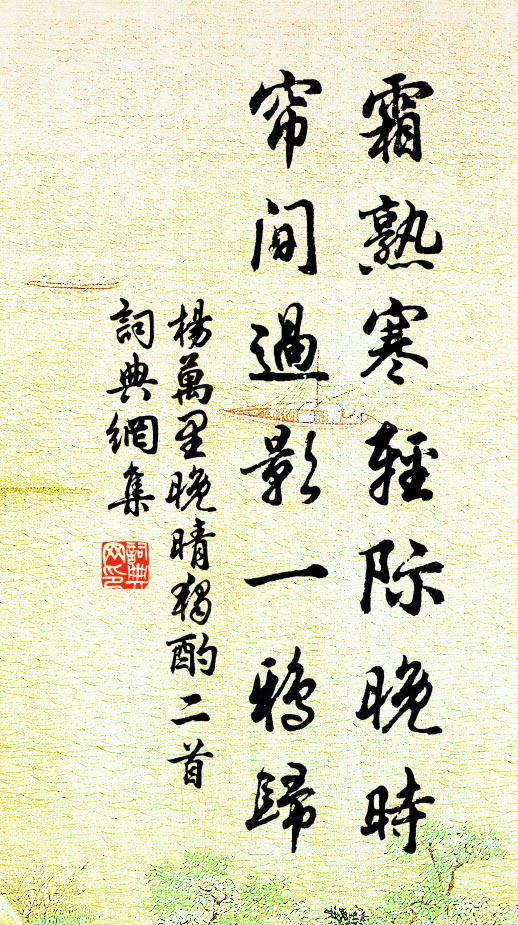 霜熟寒轻际晚時
帘間過影一鴉歸
楊萬里晚晴獨酌二首
詞典網集
詞典网印